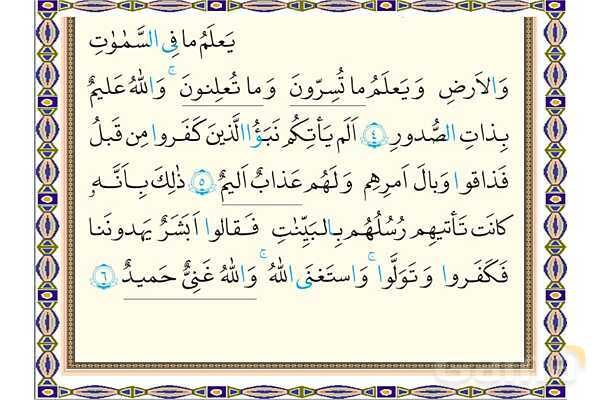 يَعلَمُ ما فِي السَّمٰوٰتِ
وَالاَرضِ وَيَعلَمُ ما تُسِرّونَ وَما تُعلِنونَ ۚ وَاللّٰهُ عَليمٌ
بِذاتِ الصُّدورِ ﴿٤﴾ اَلَم يَأتِكُم نَبَؤُا الَّذينَ كَفَروا مِن قَبلُ
فَذاقوا وَبالَ اَمرِهِم وَلَهُم عَذابٌ اَليمٌ ﴿٥﴾ ذٰلِكَ بِاَنَّهٗ
كانَت تَأتيهِم رُسُلُهُم بِالبَيِّنٰتِ فَقالوا اَبَشَرٌ يَهدونَنا
فَكَفَروا وَتَوَلَّوا ۚ وَاستَغنَى اللّٰهُ ۚ وَاللّٰهُ غَنِیٌّ حَميدٌ ﴿٦﴾